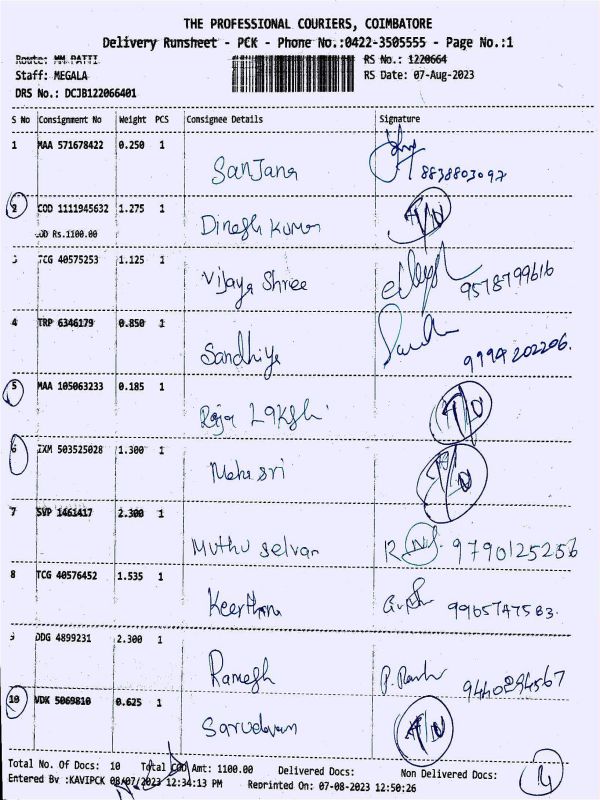 THE PROFESSIONAL COURIERS, COIMBATORE
Delivery Runsheet - PCK - Phone No.:0422-3505555 - Page No.:1
Route: MM PATTI RS No.: 1220664
Staff: MEGALA RS Date: 07-Aug-2023
DRS No.: DCJB122066401
S No Consignment No Weight PCS Consignee Details Signature
1 MAA 571678422 0.250 1
Sanjana 8838803097
2 COD 1111945632 1.275 1
COD Rs.1100.00 Dinesh Kumar
3 TCG 40575253 1.125 1
Vijaya Shree 9578799616
4 TRP 6346179 0.850 1
Sandhiya 9994202206.
5 MAA 105063233 0.185 1
Raja
6 IXM 503525028 1.300 1
Mahasri
7 SVP 1461417 2.300 1
Muthu Selvan 9790125256
8 TCG 40576452 1.535 1
Keerthana 9965747583.
9 DDG 4899231 2.300 1
Ramesh 9440894567
10 VDK 5069810 0.625 1
Total No. Of Docs: 10 Total COD Amt: 1100.00 Delivered Docs: Non Delivered Docs: 4
Entered By :KAVIPCK 08/07/2023 12:34:13 PM Reprinted On: 07-08-2023 12:50:26